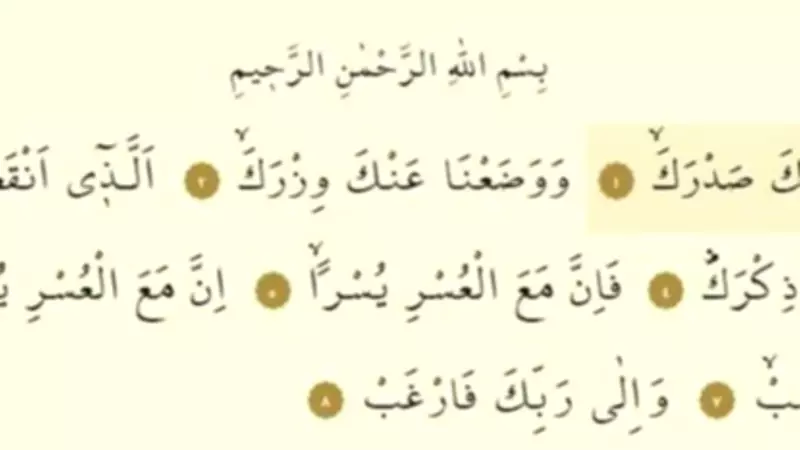 بِسْمِ اللهِ الرَّحْمٰنِ الرَّحٖيمِ
صَدْرَكَۙ ١ وَوَضَعْنَا عَنْكَ وِزْرَكَۙ ٢ اَلَّذٖٓى
ذِكْرَكَؕ ٤ فَاِنَّ مَعَ الْعُسْرِ يُسْرًاۙ ٥ اِنَّ مَعَ الْعُسْرِ
٧ وَاِلٰى رَبِّكَ فَارْغَبْ ٨